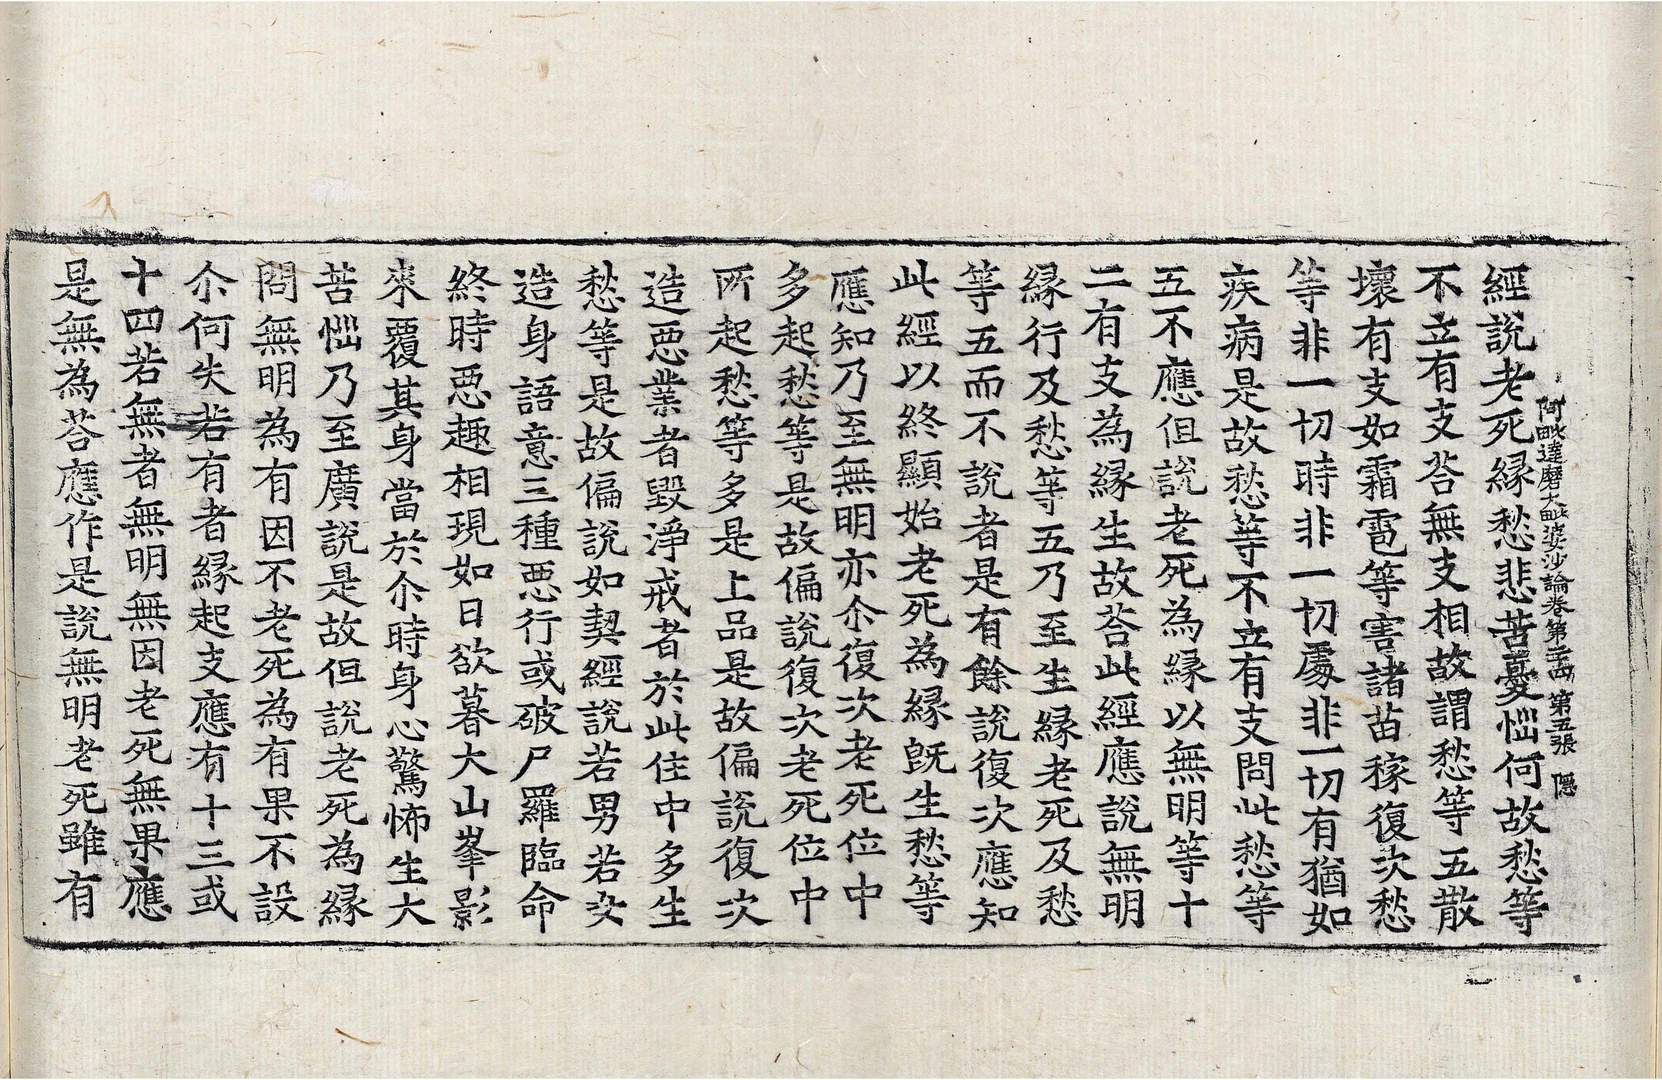 阿毗達磨大毗婆沙論卷第二十四 第五張 隱
經說老死緣愁悲苦憂惱何故愁等
不立有支荅無支相故謂愁等五散
壞有支如霜雹等害諸苗稼復次愁
等非一切時非一切處非一切有猶如
疾病是故愁等不立有支問此愁等
五不應但說老死為緣以無明等十
二有支為緣生故荅此經應說無明
緣行及愁等五乃至生緣老死及愁
等五而不說者是有餘說復次應知
此經以終顯始老死為緣旣生愁等
應知乃至無明亦尒復次老死位中
多起愁等是故偏說復次老死位中
所起愁等多是上品是故偏說復次
造惡業者毀淨戒者於此住中多生
愁等是故偏說如契經說若男若女
造身語意三種惡行或破尸羅臨命
終時惡趣相現如日欲暮大山峯影
來覆其身當於尒時身心驚怖生大
苦惱乃至廣說是故但說老死為緣
問無明為有因不老死為有果不設
尒何失若有者緣起支應有十三或
十四若無者無明無因老死無果應
是無為荅應作是說無明老死雖有